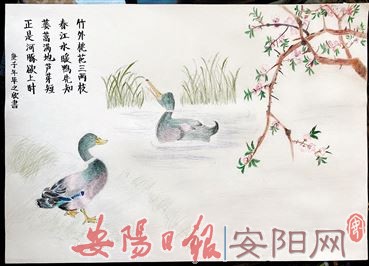 竹外桃花三两枝
春江水暖鸭先知
蒌蒿满地芦芽短
正是河豚欲上时
庚子年
安陽日報 | 安阳网